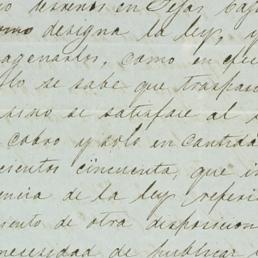 terrenos en Tejas, baj
como designa la ley, y
agenarlos, como en efec
lo se sabe que traspas
se satisface al
cobro y solo en cantida
cientos cincuenta, que i
encia de la ley referi
mento de otra disposicion
necesidad de publicar